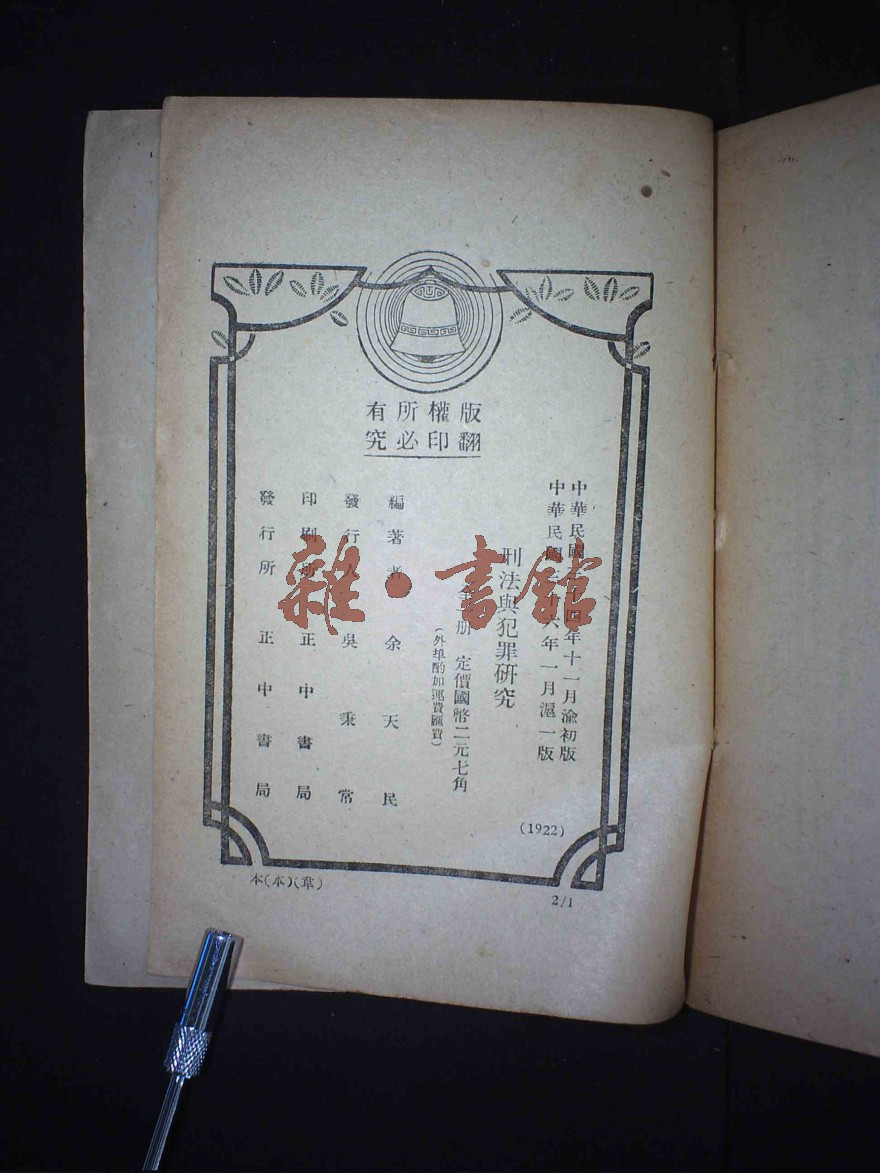 版權所有
翻印必究
中華民國 四年十一月渝初版
中華民國 十六年一月滬一版
刑法與犯罪研究
全一册 定價國幣二元七角
(外埠酌加運費匯費)
編著者 余天民
發行人 吳秉常
印刷所 正中書局
發行所 正中書局
(1922)
本(本)(章)
2/1
雜·書館